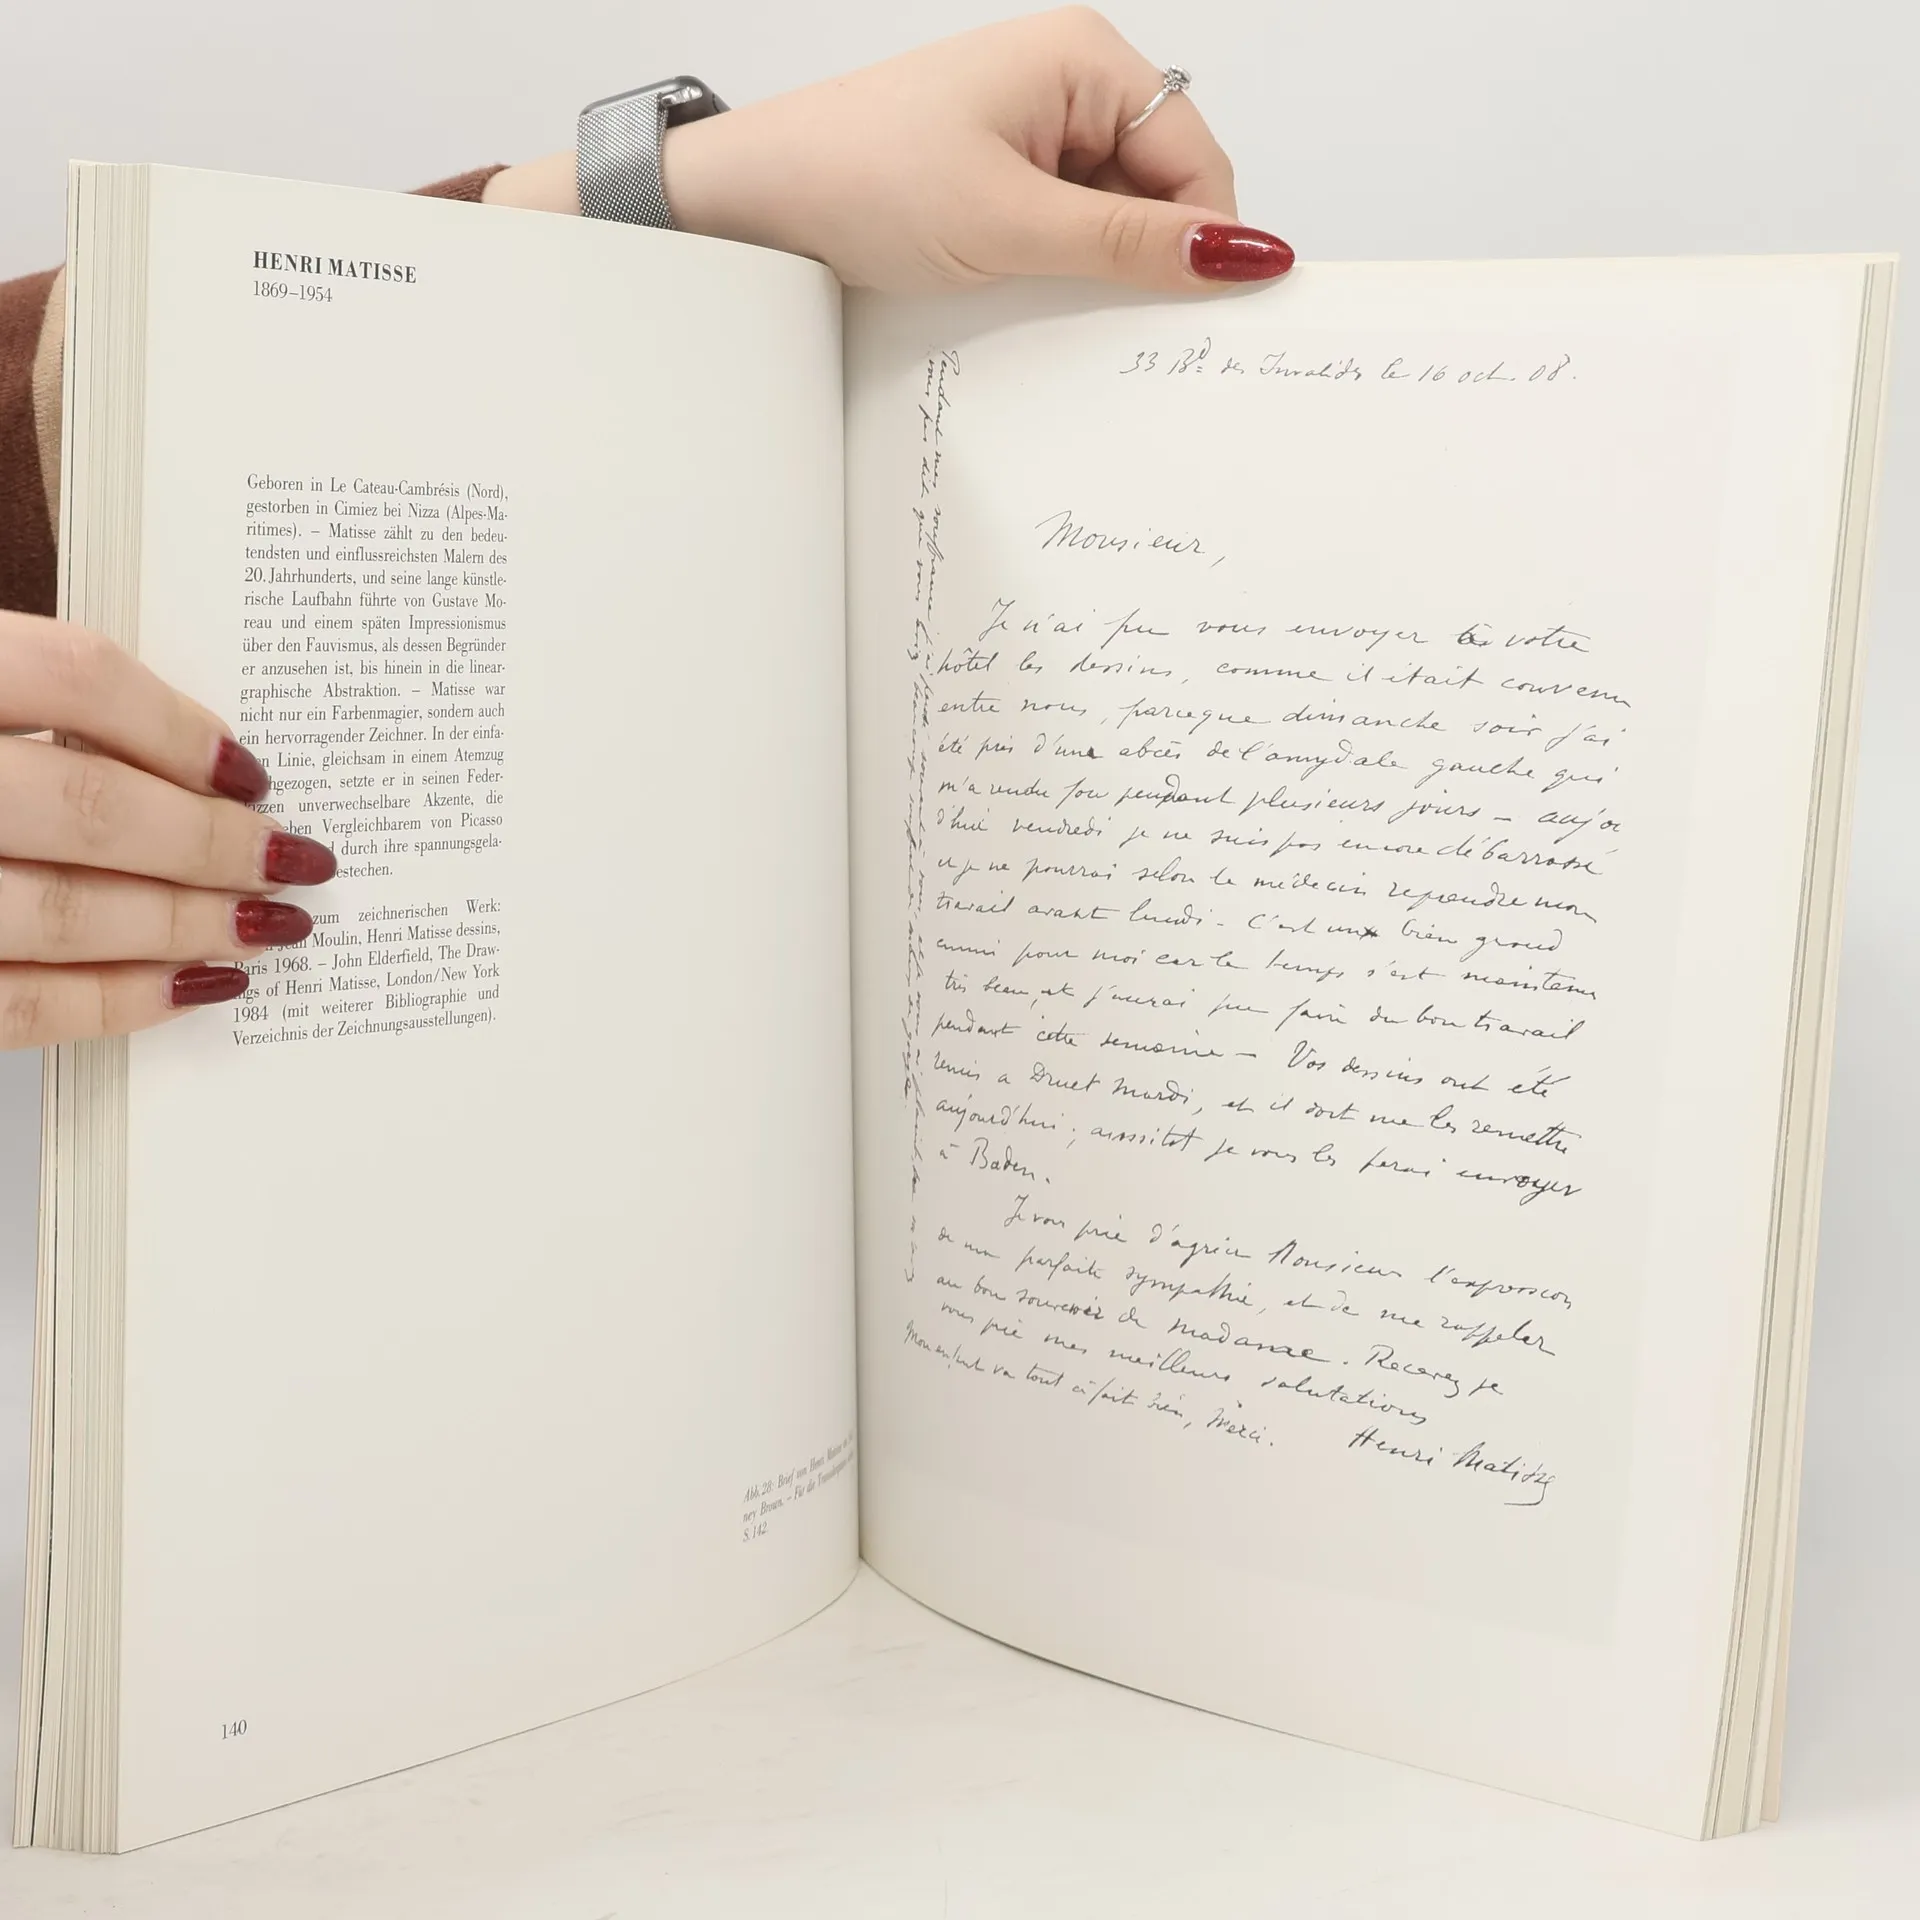 HENRI MATISSE
1869–1954
Geboren in Le Cateau-Cambrésis (Nord),
gestorben in Cimiez bei Nizza (Alpes-Ma-
ritimes). – Matisse zählt zu den bedeu-
tendsten und einflussreichsten Malern des
20. Jahrhunderts, und seine lange künstle-
rische Laufbahn führte von Gustave Mo-
reau und einem späten Impressionismus
über den Fauvismus, als dessen Begründer
er anzusehen ist, bis hinein in die linear-
graphische Abstraktion. – Matisse war
nicht nur ein Farbenmagier, sondern auch
ein hervorragender Zeichner. In der einfa-
Linie, gleichsam in einem Atemzug
setzte er in seinen Feder-
unverwechselbare Akzente, die
Vergleichbarem von Picasso
durch ihre spannungsgela-
zum zeichnerischen Werk:
Moulin, Henri Matisse dessins,
Paris 1968. – John Elderfield, The Draw-
of Henri Matisse, London/New York
1984 (mit weiterer Bibliographie und
Verzeichnis der Zeichnungsausstellungen).
Abb. 28: Brief von Henri Matisse
ney Brown. – Für die
S. 142
140
33 Bd des Invalides le 16 oct. 08.
Monsieur,
Je n'ai pu vous envoyer à votre
hôtel les dessins, comme il était convenu
entre nous, parceque dimanche soir j'ai
été pris d'une abcès de l'amydale gauche qui
m'a rendu fou pendant plusieurs jours – aujou
d'hui vendredi je ne suis pas encore débarrassé
et je ne pourrai selon le médecin reprendre mon
travail avant lundi – C'est un bien grand
ennui pour moi car le temps s'est maintenu
très beau, et j'aurai pu faire du bon travail
pendant cette semaine – Vos dessins ont été
remis a Druet Mardi, et il doit me les remettre
aujourd'hui ; aussitôt je vous les ferai envoyer
à Baden.
Je vous prie d'agréer Monsieur l'expression
de ma parfaite sympathie, et de me rappeler
au bon souvenir de madame. Recevez je
vous prie mes meilleurs salutations
Mon enfant va tout à fait bien, Merci.
Henri Matisse
Pendant mes souffrances
vous pas dit que vous